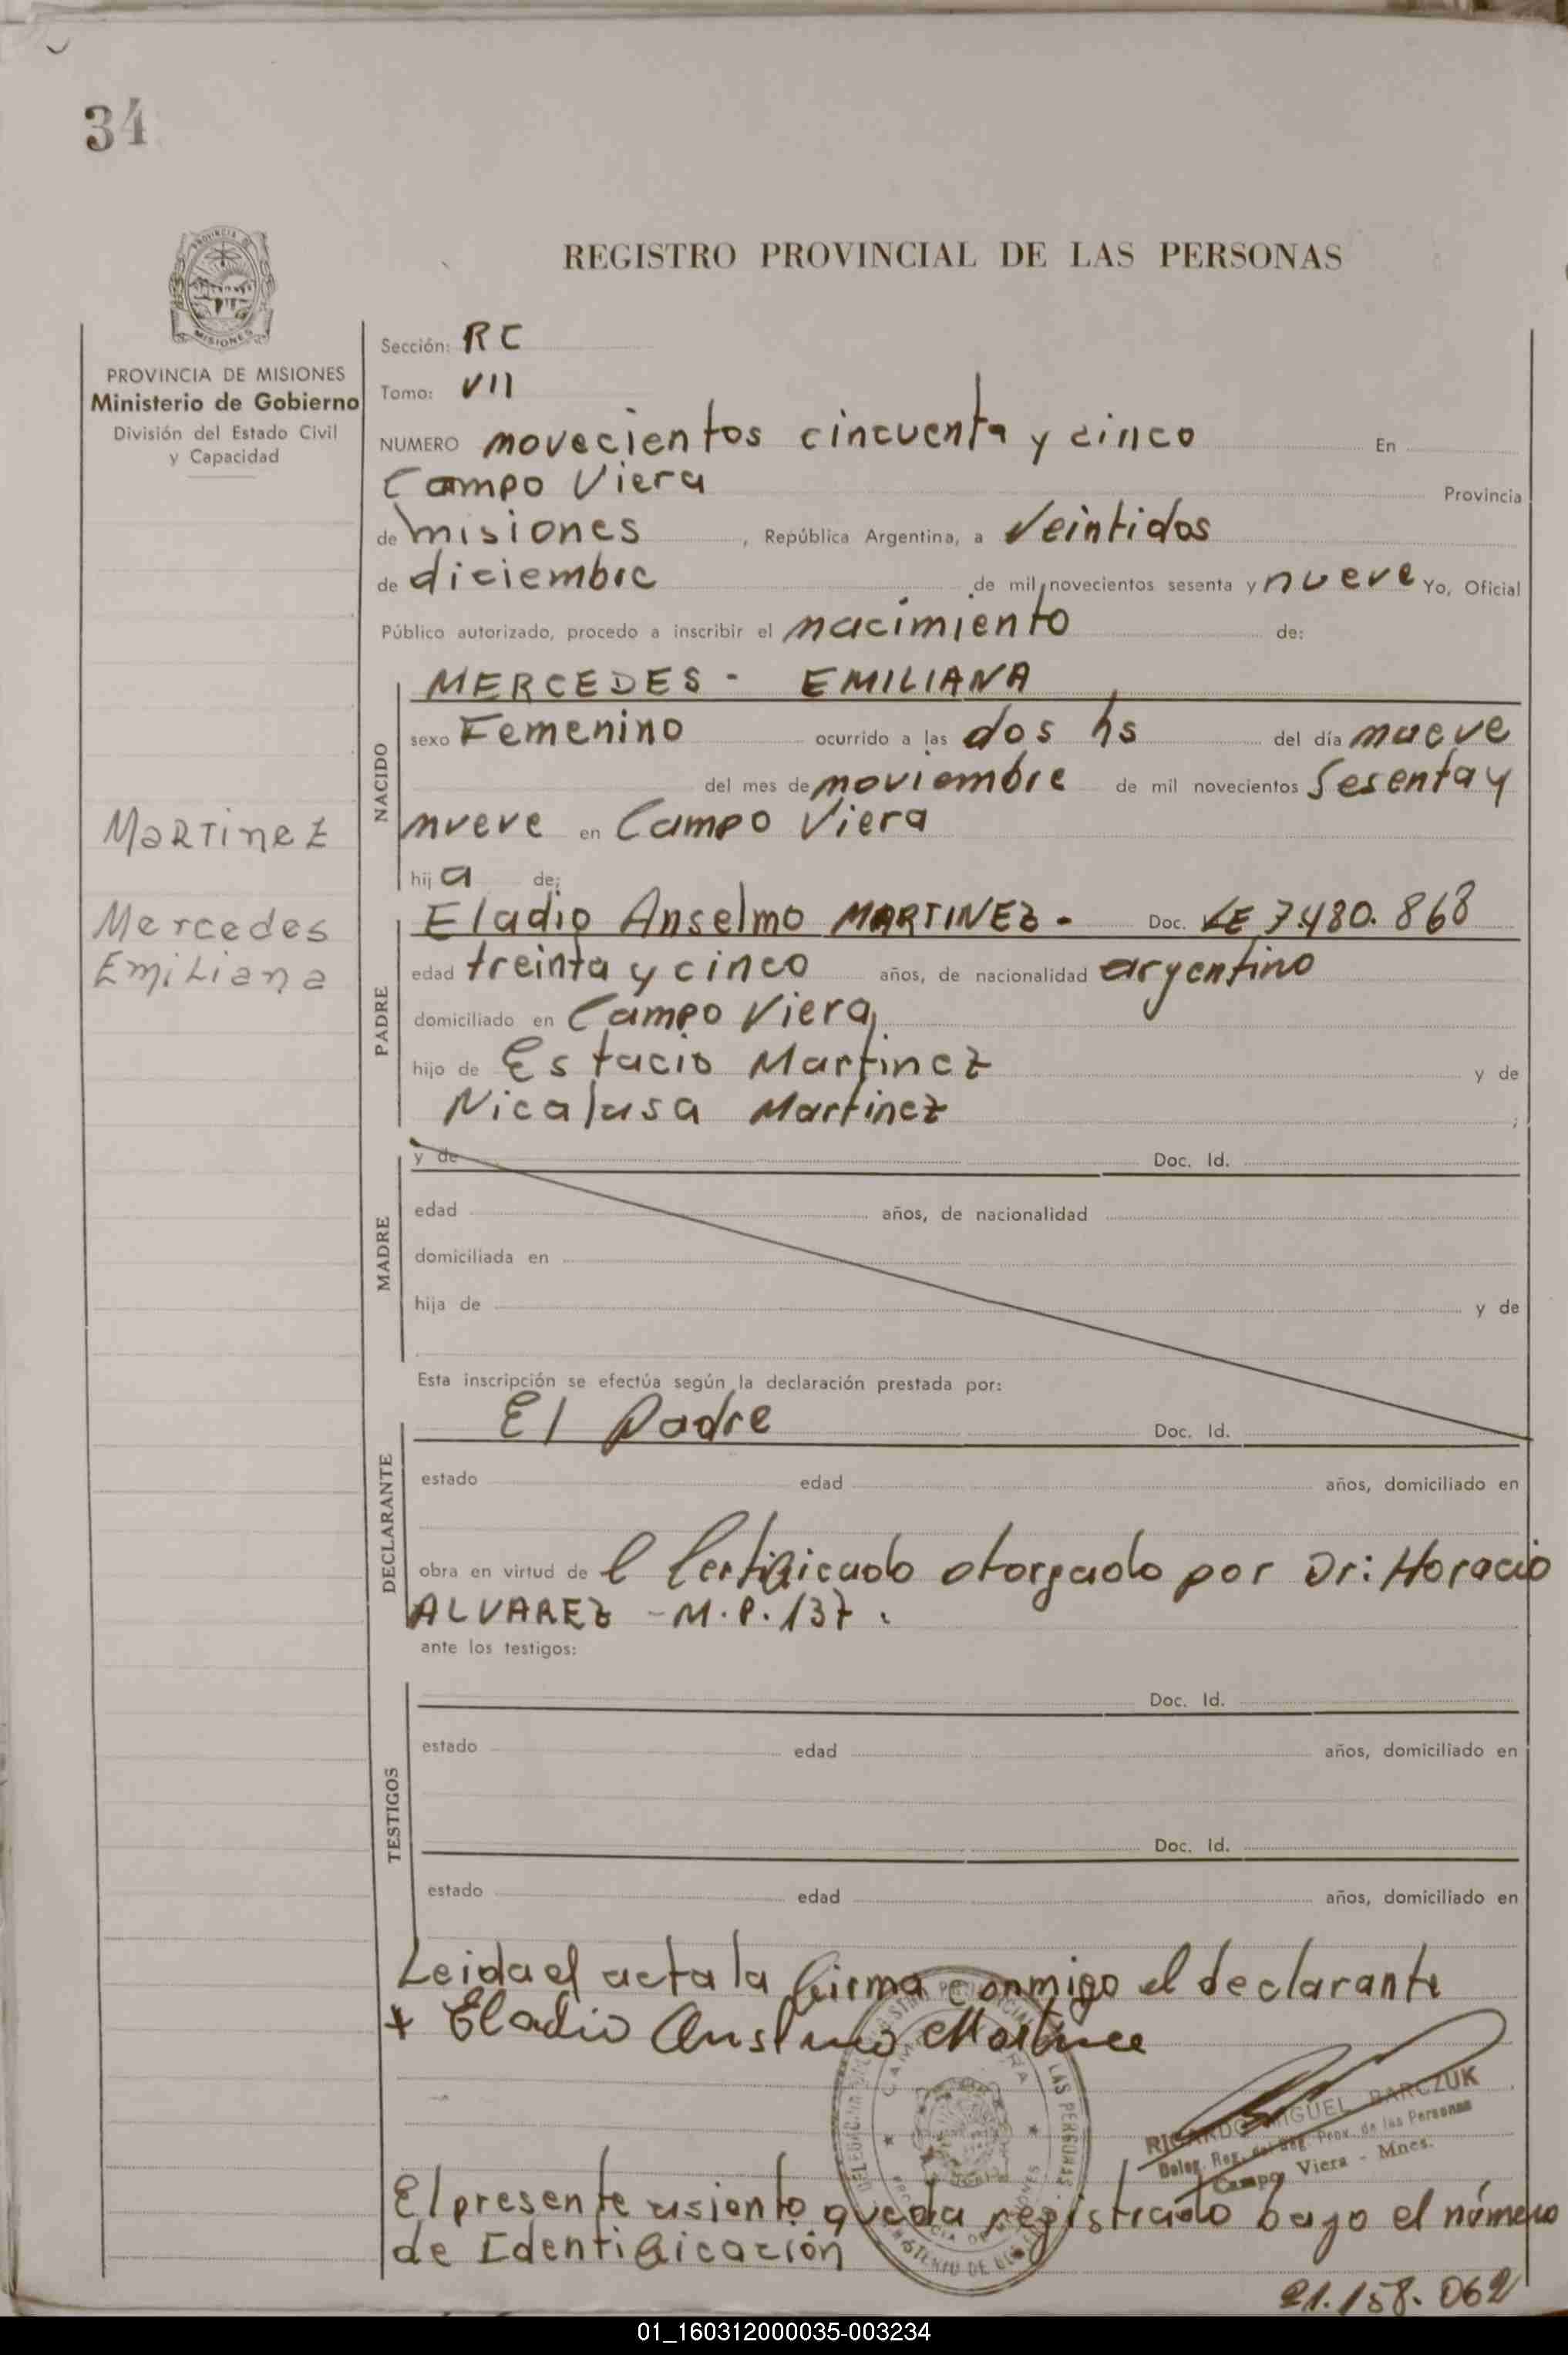 34
REGISTRO PROVINCIAL DE LAS PERSONAS
MISIONES
PROVINCIA DE MISIONES
Ministerio de Gobierno
División del Estado Civil
y Capacidad
Martinez
Mercedes
Emiliana
Sección: RC
Tomo: VII
NUMERO novecientos cincuenta y cinco En
Campo Viera Provincia
de misiones, República Argentina, a Veintidos
de diciembre de mil novecientos sesenta y nueve Yo, Oficial
Público autorizado, procedo a inscribir el nacimiento de:
NACIDO
MERCEDES - EMILIANA
sexo Femenino ocurrido a las dos hs del día nueve
del mes de noviembre de mil novecientos Sesenta y
nueve en Campo Viera
hija de;
PADRE
Eladio Anselmo MARTINEZ - Doc. LE 7.480.868
edad treinta y cinco años, de nacionalidad argentino
domiciliado en Campo Viera
hijo de Estacio Martinez y de
Nicalasa Martinez ;
MADRE
y de Doc. Id.
edad años, de nacionalidad
domiciliada en
hija de y de
Esta inscripción se efectúa según la declaración prestada por:
DECLARANTE
El Padre Doc. Id.
estado edad años, domiciliado en
obra en virtud de l Certificado otorgado por Dr: Horacio
ALVAREZ - M.P. 137.
ante los testigos:
TESTIGOS
Doc. Id.
estado edad años, domiciliado en
Doc. Id.
estado edad años, domiciliado en
Leida el acta la firma conmigo el declarante
+ Eladio Anselmo Martinez
RICARDO MIGUEL BARCZUK
Deleg. Reg. del Reg. Prov. de las Personas
Campo Viera - Mnes.
El presente asiento queda registrado bajo el número
de Identificación
21.158.062
01_160312000035-003234